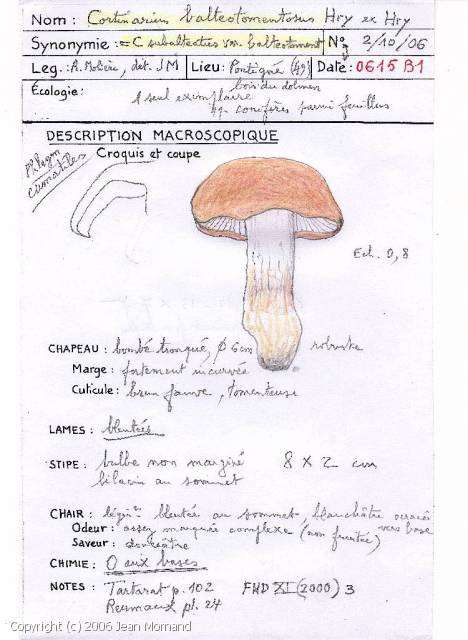 Nom : Cortinarius balteotomentosus Hry ex Hry
Synonymie : = C subaltectus var. balteotoment N° 2/10/06
Leg. : A. Molière, det. J M Lieu : Pontigné (49) Date : 0615 B1
bois du dolmen
Écologie : 1 seul exemplaire
qq. conifères parmi feuillus
DESCRIPTION MACROSCOPIQUE
Croquis et coupe
Phlegm
cumatiles
Ech. 0,8
CHAPEAU : bombé tronqué, Ø 6 cm robuste
Marge : fortement incurvée
Cuticule : brun fauve, tomenteuse
LAMES : bleutées
STIPE : bulbe non marginé 8 X 2 cm
lilacin au sommet
CHAIR : légèrᵗ bleutée au sommet, blanchâtre ocracée
vers base
Odeur : assez marquée complexe (non fruitée)
Saveur : douceâtre
CHIMIE : O aux bases
NOTES : Tartarat p. 102 FMD XI (2000) 3
Reumaux pl. 24
Copyright (c) 2006 Jean Mornand